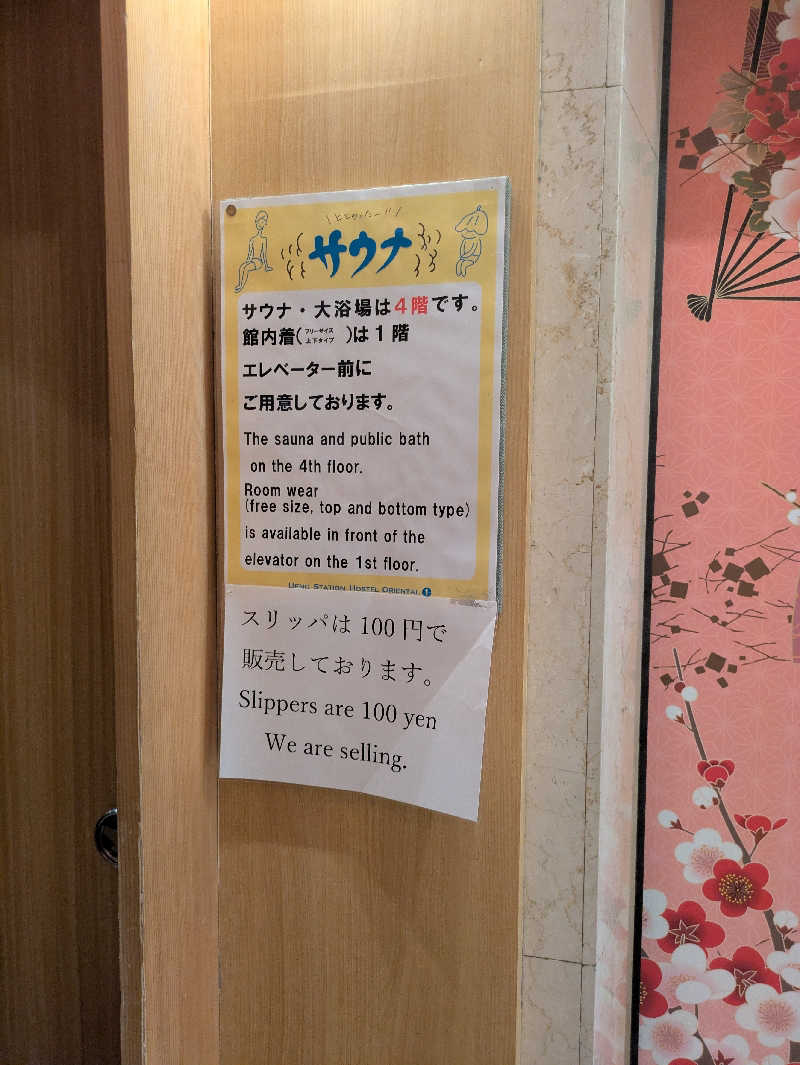 \ととのったー!! /
サウナ
サウナ・大浴場は4階です。
館内着(フリーサイズ 上下タイプ)は1階
エレベーター前に
ご用意しております。
The sauna and public bath
on the 4th floor.
Room wear
(free size, top and bottom type)
is available in front of the
elevator on the 1st floor.
UENO STATION HOSTEL ORIENTAL 1
スリッパは 100 円で
販売しております。
Slippers are 100 yen
We are selling.